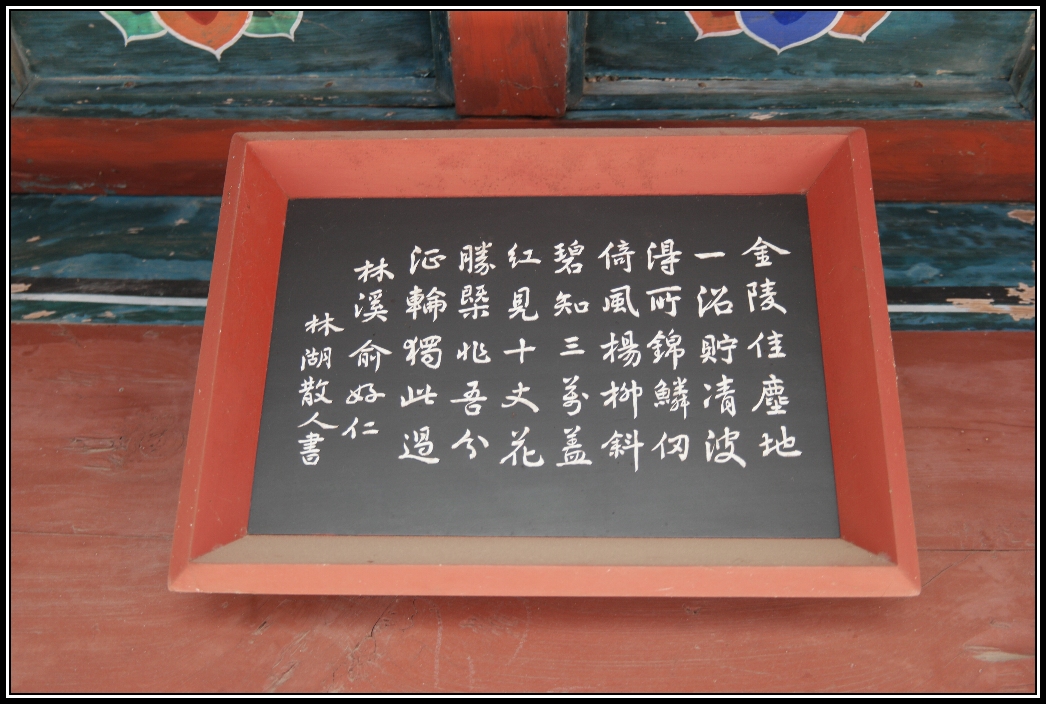 金陵佳塵地
一沼貯清波
得所錦鱗仭
倚風楊柳斜
碧知三万盖
紅見十丈花
勝槩非吾分
征輪獨此過
林溪俞好仁
林湖散人書